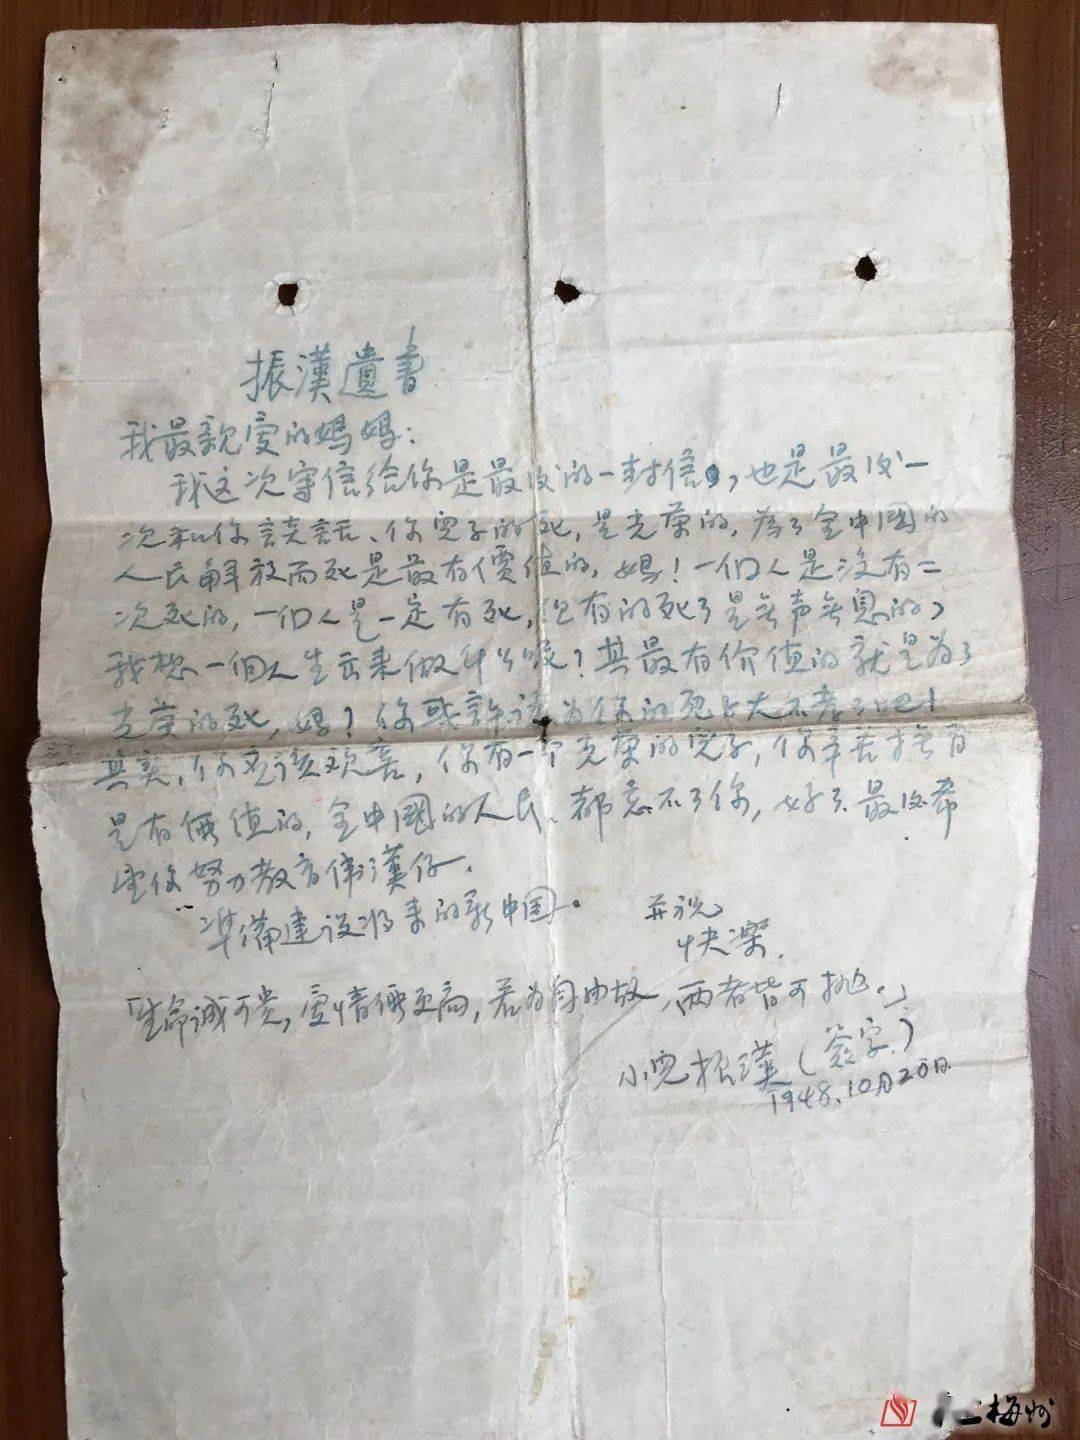 振漢遺書
我最親爱的媽媽：
我这次寄信给你是最后的一封信，也是最后一
次和你談話、你兒子的死，是光荣的，為了全中國的
人民解放而死是最有價值的，媽！一個人是没有二
次死的，一個人是一定有死，但有的死了是無声無息的，
我想一個人生出来做什么呢？其最有价值的就是为了
光荣的死，媽？你或許
其实，你应该欢喜，你有一个光荣的兒子，你辛苦
是有價值的，全中國的人民、都忘不了你，好了最后希
望你努力教育偉漢仔．
準備建设将来的新中国．
并祝
快樂．
「生命诚可贵，爱情價更高，若为自由故，两者皆可抛。」
小兒振漢（簽字）
1948.10月20日
梅州